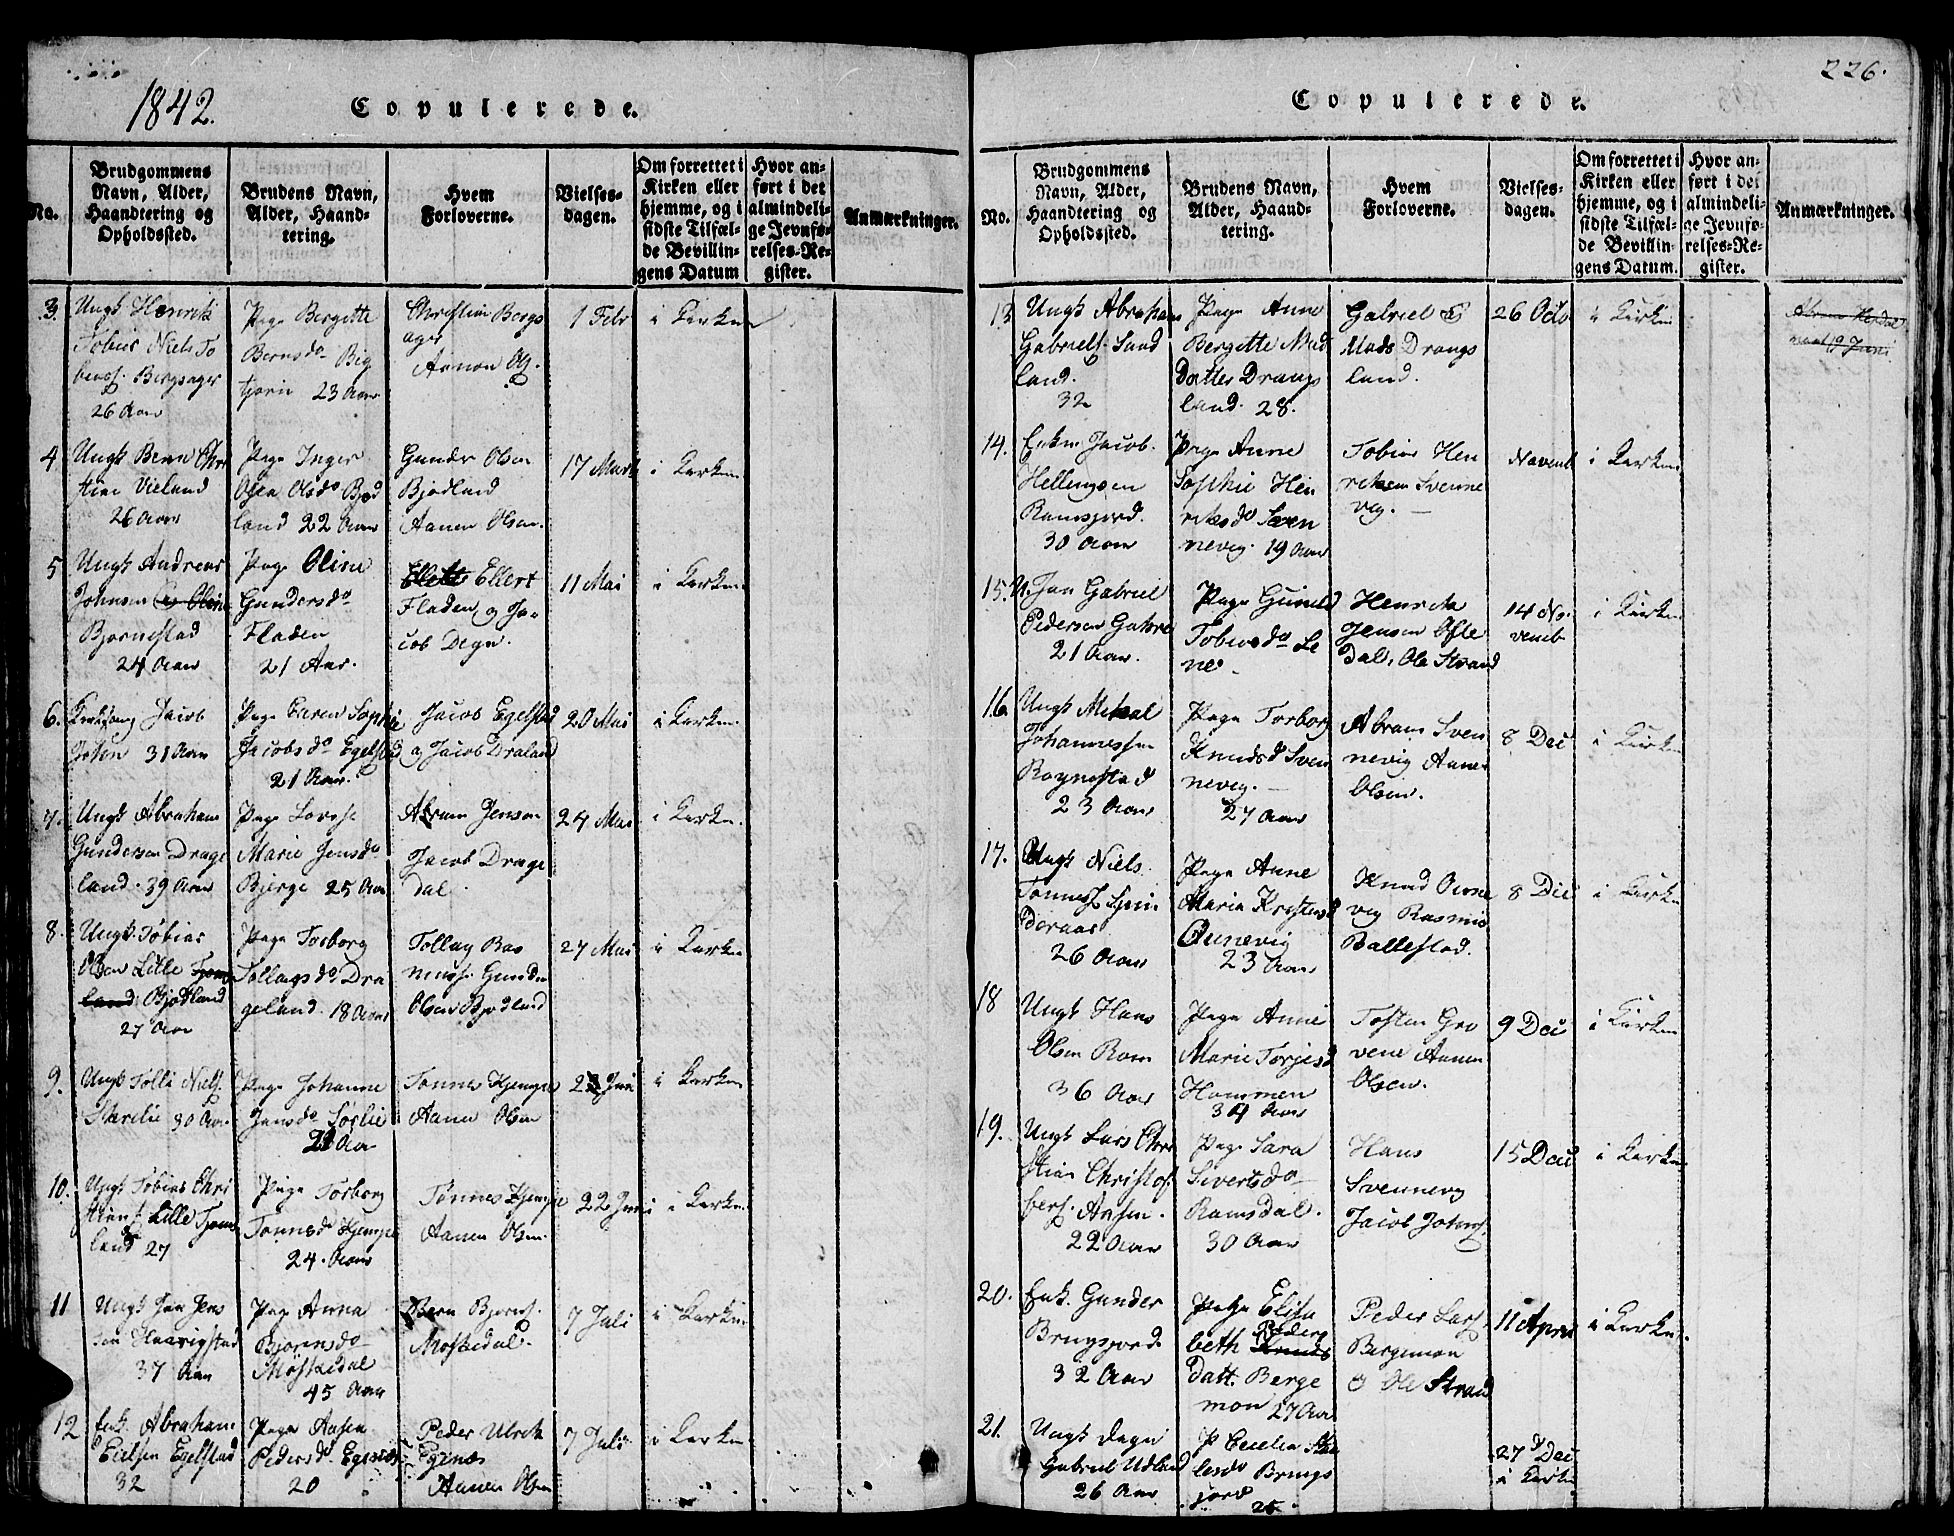 1842.
Copulerede.
No.
Brudgommens Navn, Alder, Haandtering og Opholdssted.
Brudens Navn, Alder, Haandtering.
Hvem Forloverne.
Vielsesdagen.
Om forrettet i Kirken eller hjemme, og i sidste Tilfælde Bevillingens Datum
Hvor anført i det almindelige Jevnførelses-Register.
Anmærkninger.
3.
Ungk Henrik
Tobias Niels To
Bergsager
26 Aar
Pige Bergitte
Bernsdr
23 Aar
Christian Bergs
ager
Aanen Ols.
1 Febr
i Kirken
4
Ungk Bern Chri
stian Vieland
26 Aar
Pige Inger
Olsdr Bjød
land 22 Aar
Gunder Olsen
Bjødland
Aanen Olsen.
17 Marts
i Kirken
5
Ungk Andreas
Johnsen
Bjørnestad
24 Aar
Pige Oline
Gundersdr
Fladen
21 Aar.
Ellert
Fladen og Ja-
cob Degn.
11 Mai
i Kirken
6.
Jacob
John 31 Aar
Pige Karen Sophie
Jacobsdr Egelstad
21 Aar.
Jacob Egelstad
og Jacob Draland
20 Mai
i Kirken
7.
Ungk Abraham
Gundersen Drage
land. 39 Aar
Pige Lovise
Marie Jensdr
Bjerge 25 Aar
Abram Jensen
Jacob Drage
dal.
24 Mai
i Kirken.
8.
Ungk. Tobias
Olsen Lille Tjom
land Bjødland
27 Aar
Pige Torborg
Tollagsdr Dra
geland. 18 Aar
Tollag Ras
muss. Gunder
Olsen Bjødland
27 Mai
i Kirken
9.
Ungk Tolli Niels.
30 Aar
Pige Johanne
Jensdr Sørlie
21 Aar
Tønnes Kjempe
Aanen Olsen
Juni
i Kirken
10.
Ungk Tobias Chri
stians. Lille Tjom
land 27
Pige Torborg
Tønnesdr Kjempe
24. Aar
Tønnes Kjempe
Aanen Olsen.
22 Juni
i Kirken
11
Ungk Jan Jens
sen Haarigstad
37 Aar
Pige Anna
Bjørensdr
Møskedal
45 Aar
Bern Bjorns.
Moskedal.
7 Juli
i Kirken
12
Enk. Abraham
Eielsen Egelstad
32
Pige Aasea
Pedersdr Egenæs
20
Peder Ulrik
Egenæs
Aanen Olsen
7 Juli
i Kirken
226.
Copulerede.
No.
Brudgommens Navn, Alder, Haandtering og Opholdssted.
Brudens Navn, Alder, Haandtering.
Hvem Forloverne.
Vielsesdagen.
Om forrettet i Kirken eller hjemme, og i sidste Tilfælde Bevillingens Datum.
Hvor anført i det almindelige Jevnførelses-Register.
Anmærkninger.
13
Ungk Abraham
Gabriels. Sand
land.
32
Pige Anne
Bergitte Mads
Datter Drangs
land. 28.
Gabriel &
Mads Drangs
land.
26 Octo
i Kirken
19 Juni
14.
Enkm Jacob.
Hellengsen
Ramsjord.
30 Aar
Pige Anne
Sophie Hen
riksdr Sven
nevig. 19 Aar
Tobias Hen
riksen Svenne
vig.
Novemb
i Kirken
15.
U. Jan Gabriel
Pedersen
21 Aar.
Pige Gunild
Tobiasdr Le
ne
Henrik
Jensen Ofte
dal, Ole Strand
14 No-
vemb
i Kirken
16.
Ungk Mikal
Johannessen
Røynestad
23 Aar
Pige Torborg
Knudsdr Sven
nevig.
27 Aar
Abram Sven
nevig Aanen
Olsen.
8 Dec
i Kirken
17.
Ungk Niels
Tønnes. Spin
deraas
26 Aar
Pige Anne
Maria Krystensd
Aunevig
23 Aar
Knud Aune
vig Rasmus
Ballestad.
8 Dec
i Kirken
18
Ungk Hans
Olsen Rom
36 Aar
Pige Anne
Marie Torjesd
Hommen
34 Aar
Tosten Gro
vene Aanen
Olsen.
9 Dec
i Kirken
19.
Ungk Lars Chri
stian Christof
fers. Aasen.
22 Aar
Pige Sara
Sivertsdr
Ramsdal.
30 Aar
Hans
Svennevig
Jacob Johns.
15 Dec
i Kirken
20.
Enk. Gunder
Bryggsjord
32 Aar
Pige Elisa
beth Peders
Knuds
datt. Berge
mon 27 Aar
Peder Lars.
Bergemon
& Ole Strand
11 April
i Kirken.
21.
Ungk Dagn
Gabriel Udland
26 Aar
P Cecelia
Bryngs
jord
25.
27 d Dec
i Kirken